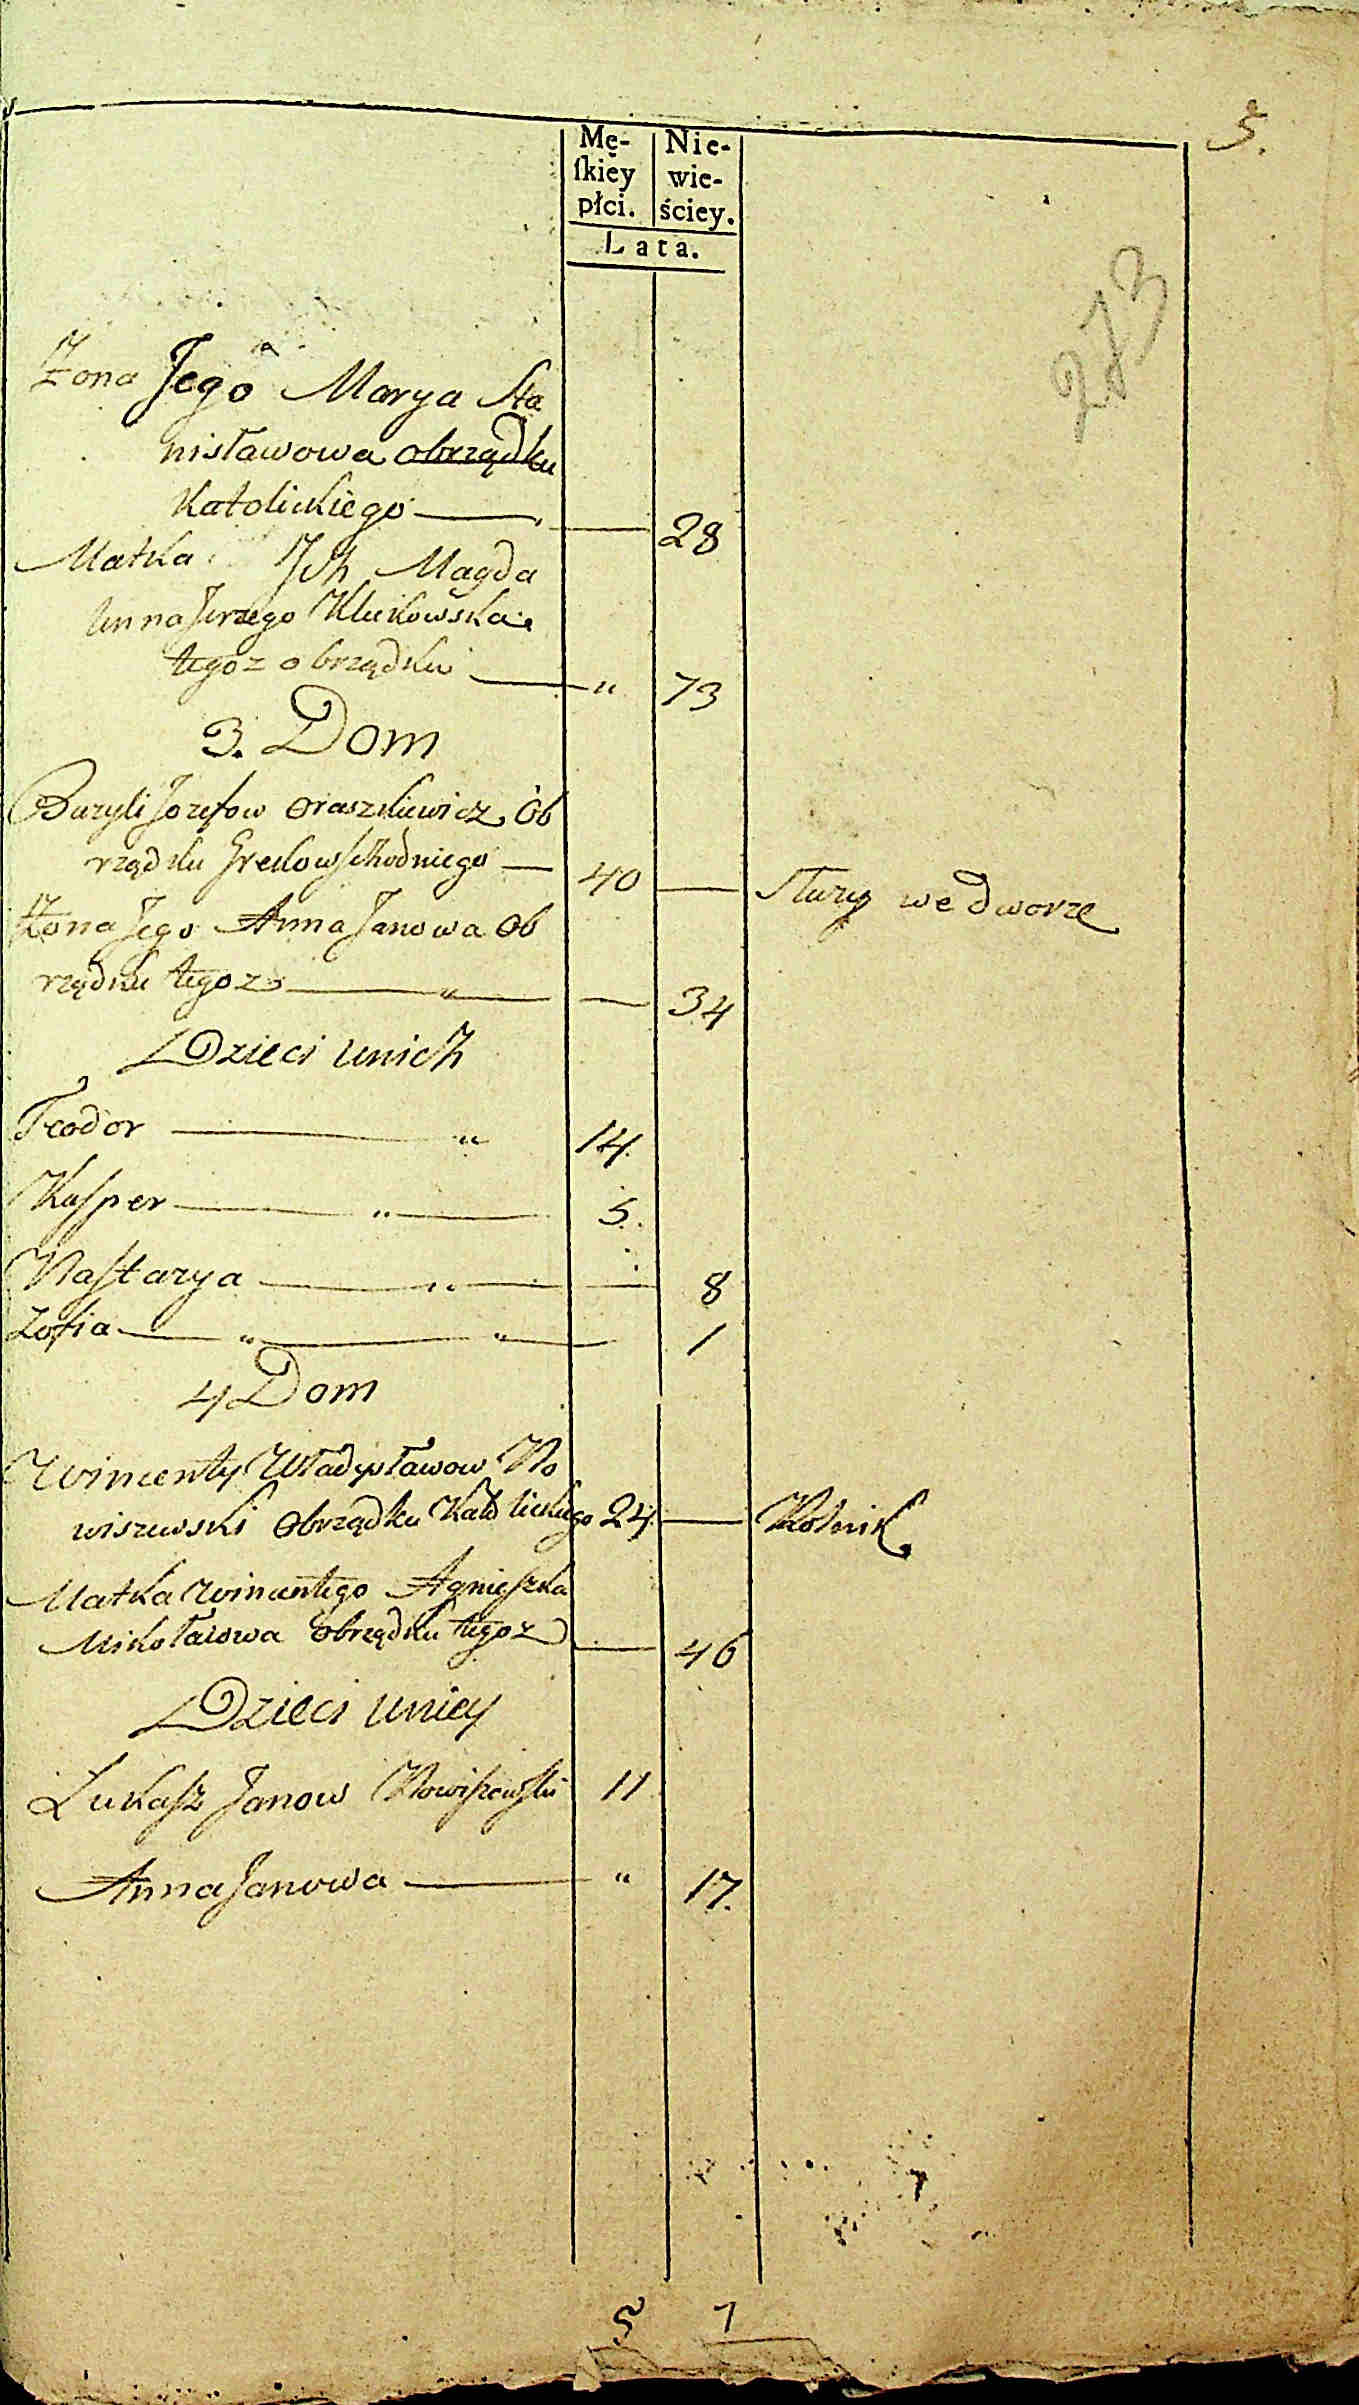 5.
Mę- Nie-
ſkiey wie-
płci. ściey.
Lata.
273
Żona Jego Marya Sta
nisławowa obrządku
Katolickiego 28
Matka Jch Magda
lenna Jerzego Klukowska
tegoz obrządku " 73
3. Dom
Bazyli Jozefow Oraszkiewicz Ob
rządku Grekowschodniego 40 Służy we dworze
Żona Jego Anna Janowa Ob
rządku tegoz " 34
Dzieci unich
Teodor " 14.
Kaſper " 5.
Naſtazya " 8
Zofia " " 1
4 Dom
Wincenty Władysławow No
wiszewski Obrządku Katolickiego 24. Rolnik
Matka Wincentego Agnieſzka
Mikołaiowa Obrządku tegoz 46
Dzieci uniey
Łukaſz Janow Nowiſzewſki 11
Anna Janowa " 17.
5 7